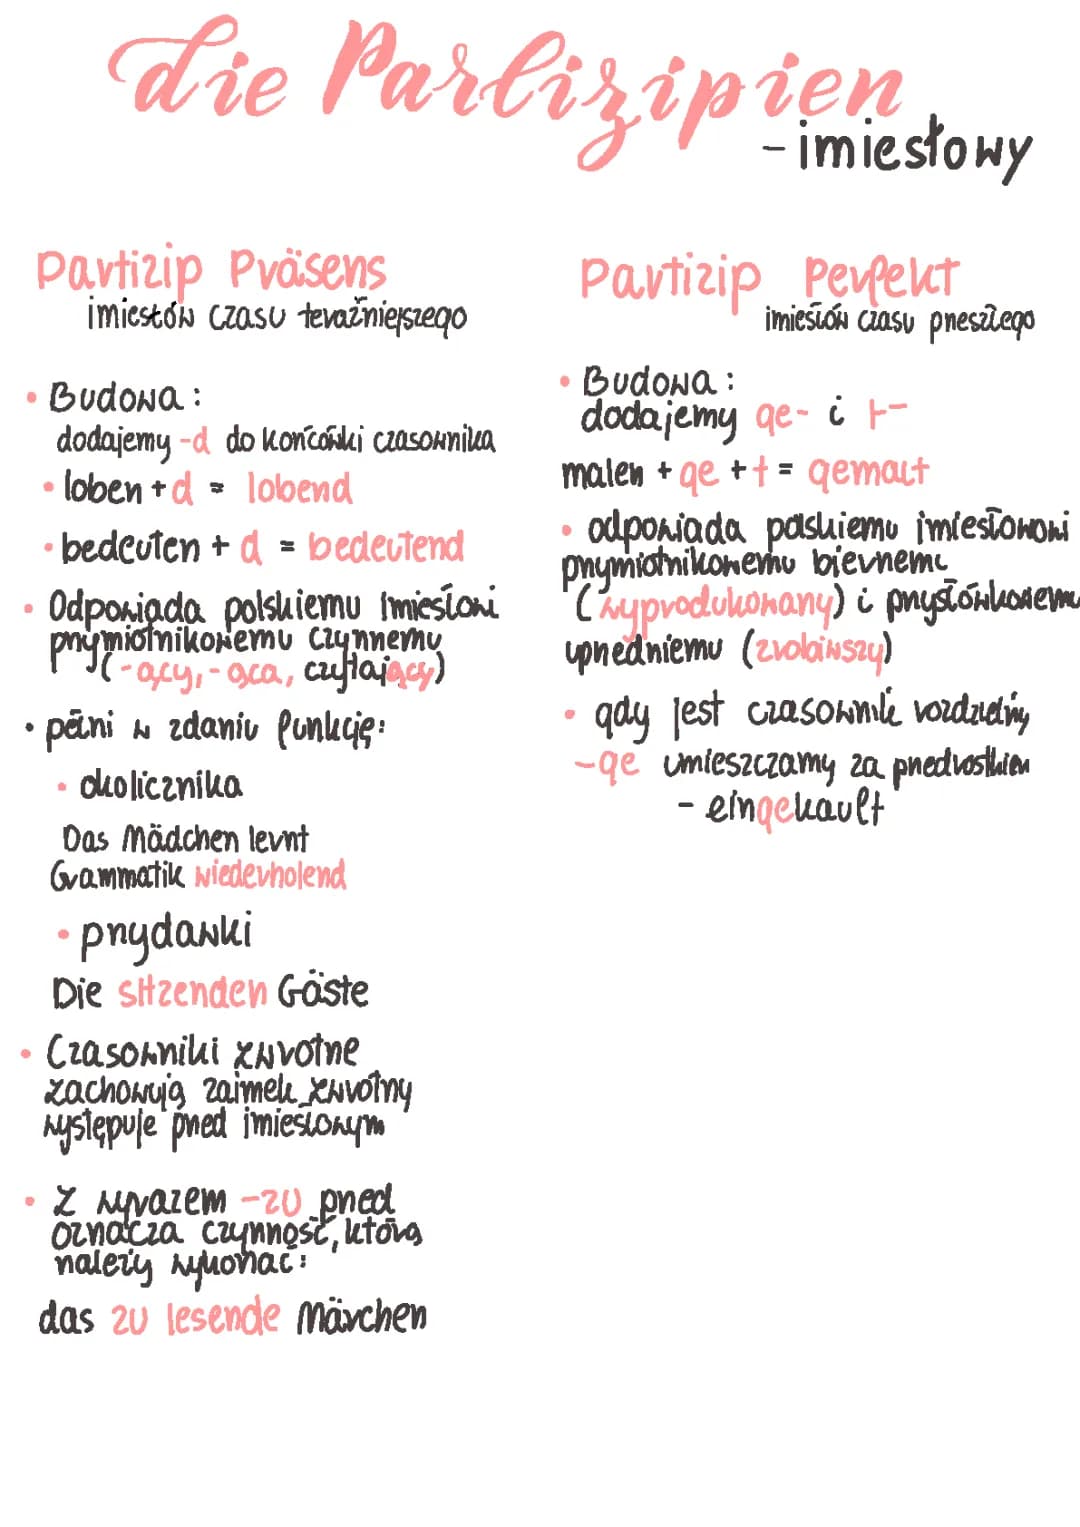 die Partizipien
- imiesłowy
Partizip Präsens
imiesłów czasu teraźniejszego
• Budowa:
dodajemy -d do końcówki czasownika
• loben + d = lobend
• bedeuten + d = bedeutend
• Odpowiada polskiemu imiesłowi
przymiotnikowemu czynnemu
(-ący, -ąca, czytający)
• pełni w zdaniu funkcję:
• okolicznika
Das Mädchen lernt
Grammatik wiederholend
• przydawki
Die sitzenden Gäste
• Czasowniki zwrotne
zachowują zaimek zwrotny
występuje przed imiesłowym
• Z wyrazem -zu przed
oznacza czynność, którą
należy wykonać:
das zu lesende Märchen
Partizip Perfekt
imiesłów czasu przeszłego
• Budowa:
dodajemy ge- i t-
malen + ge + t = gemalt
• odpowiada polskiemu imiesłowowi
przymiotnikowemu biernemu
(wyprodukowany) i przysłówkowemu
uprzedniemu (zrobiwszy)
• gdy jest czasownik rozdzielny
-ge umieszczamy za przedrostkiem
- eingekauft